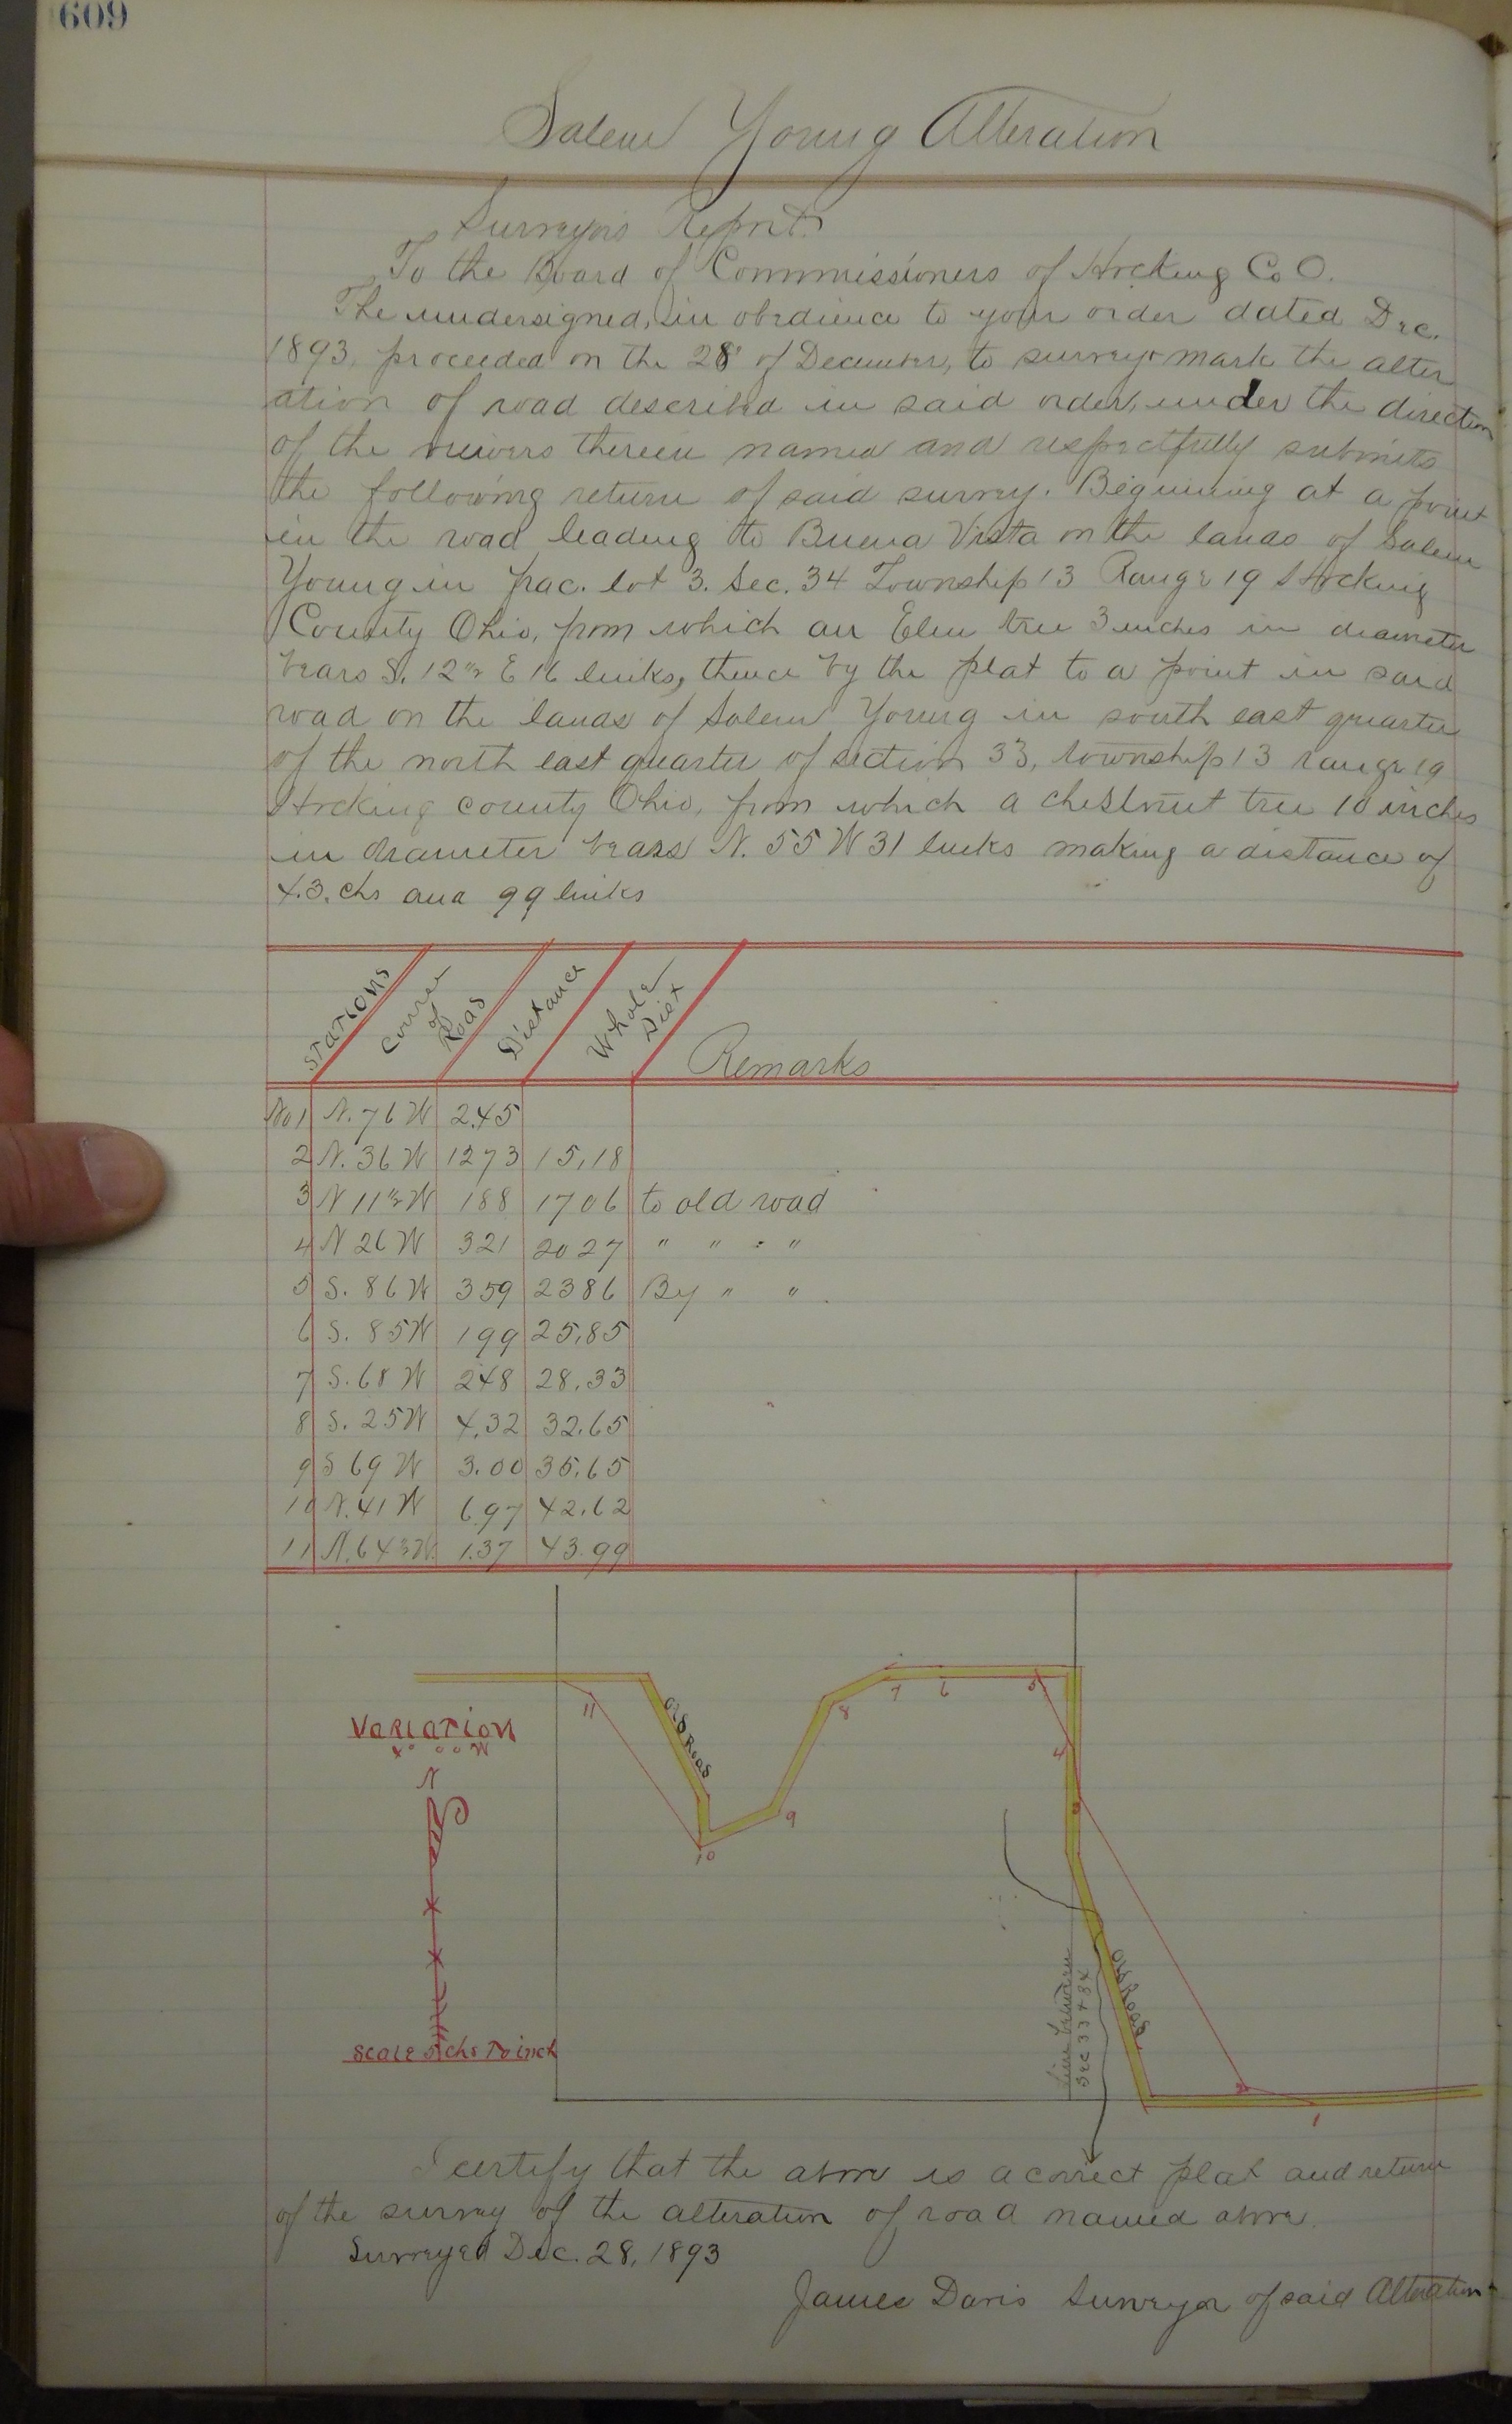 609
Salem Young Alteration
Surveyors Report
To the Board of Commissioners of Hocking Co O.
The undersigned, in obedience to your order dated Dec.
1893, proceeded on the 28" of December, to survey + mark the alter
ation of road described in said order, under the direction
of the viewers therein named and respectfully submits
the following return of said survey. Beginning at a point
in the road leading to Buena Vista on the lands of Salem
Young in frac. lot 3. Sec. 34 Township 13 Range 19 Hocking
County Ohio, from which an Elm tree 3 inches in diameter
bears S. 12 1/2 E 16 links, thence by the plat to a point in said
road on the lands of Salem Young in south east quarter
of the north east quarter of section 33, township 13 range 19
Hocking county Ohio, from which a chestnut tree 10 inches
in diameter bears N. 55 W 31 links making a distance of
43. chs and 99 links
Stations Course of Road Distance Whole Dist Remarks
No 1 N. 76 W 2.45
2 N. 36 W 1273 15,18
3 N 11 1/2 W 188 1706 to old road
4 N 26 W 321 2027 " " " "
5 S. 86 W 359 2386 By " "
6 S. 85 W 199 25,85
7 S. 68 W 248 28.33
8 S. 25 W 4,32 32.65
9 S 69 W 3.00 35,65
10 N. 41 W 6.97 42,62
11 N. 64 1/2 W. 1.37 43.99
11
Old Road
10
9
8
7
6
5
4
3
2
1
Variation
4° 00 W
N
Scale 5 chs To inch
Old Road
Line between
Sec 33 + 34
I certify that the above is a correct plat and return
of the survey of the alteration of road named above.
Surveyed Dec. 28, 1893
James Davis Surveyor of said Alteration